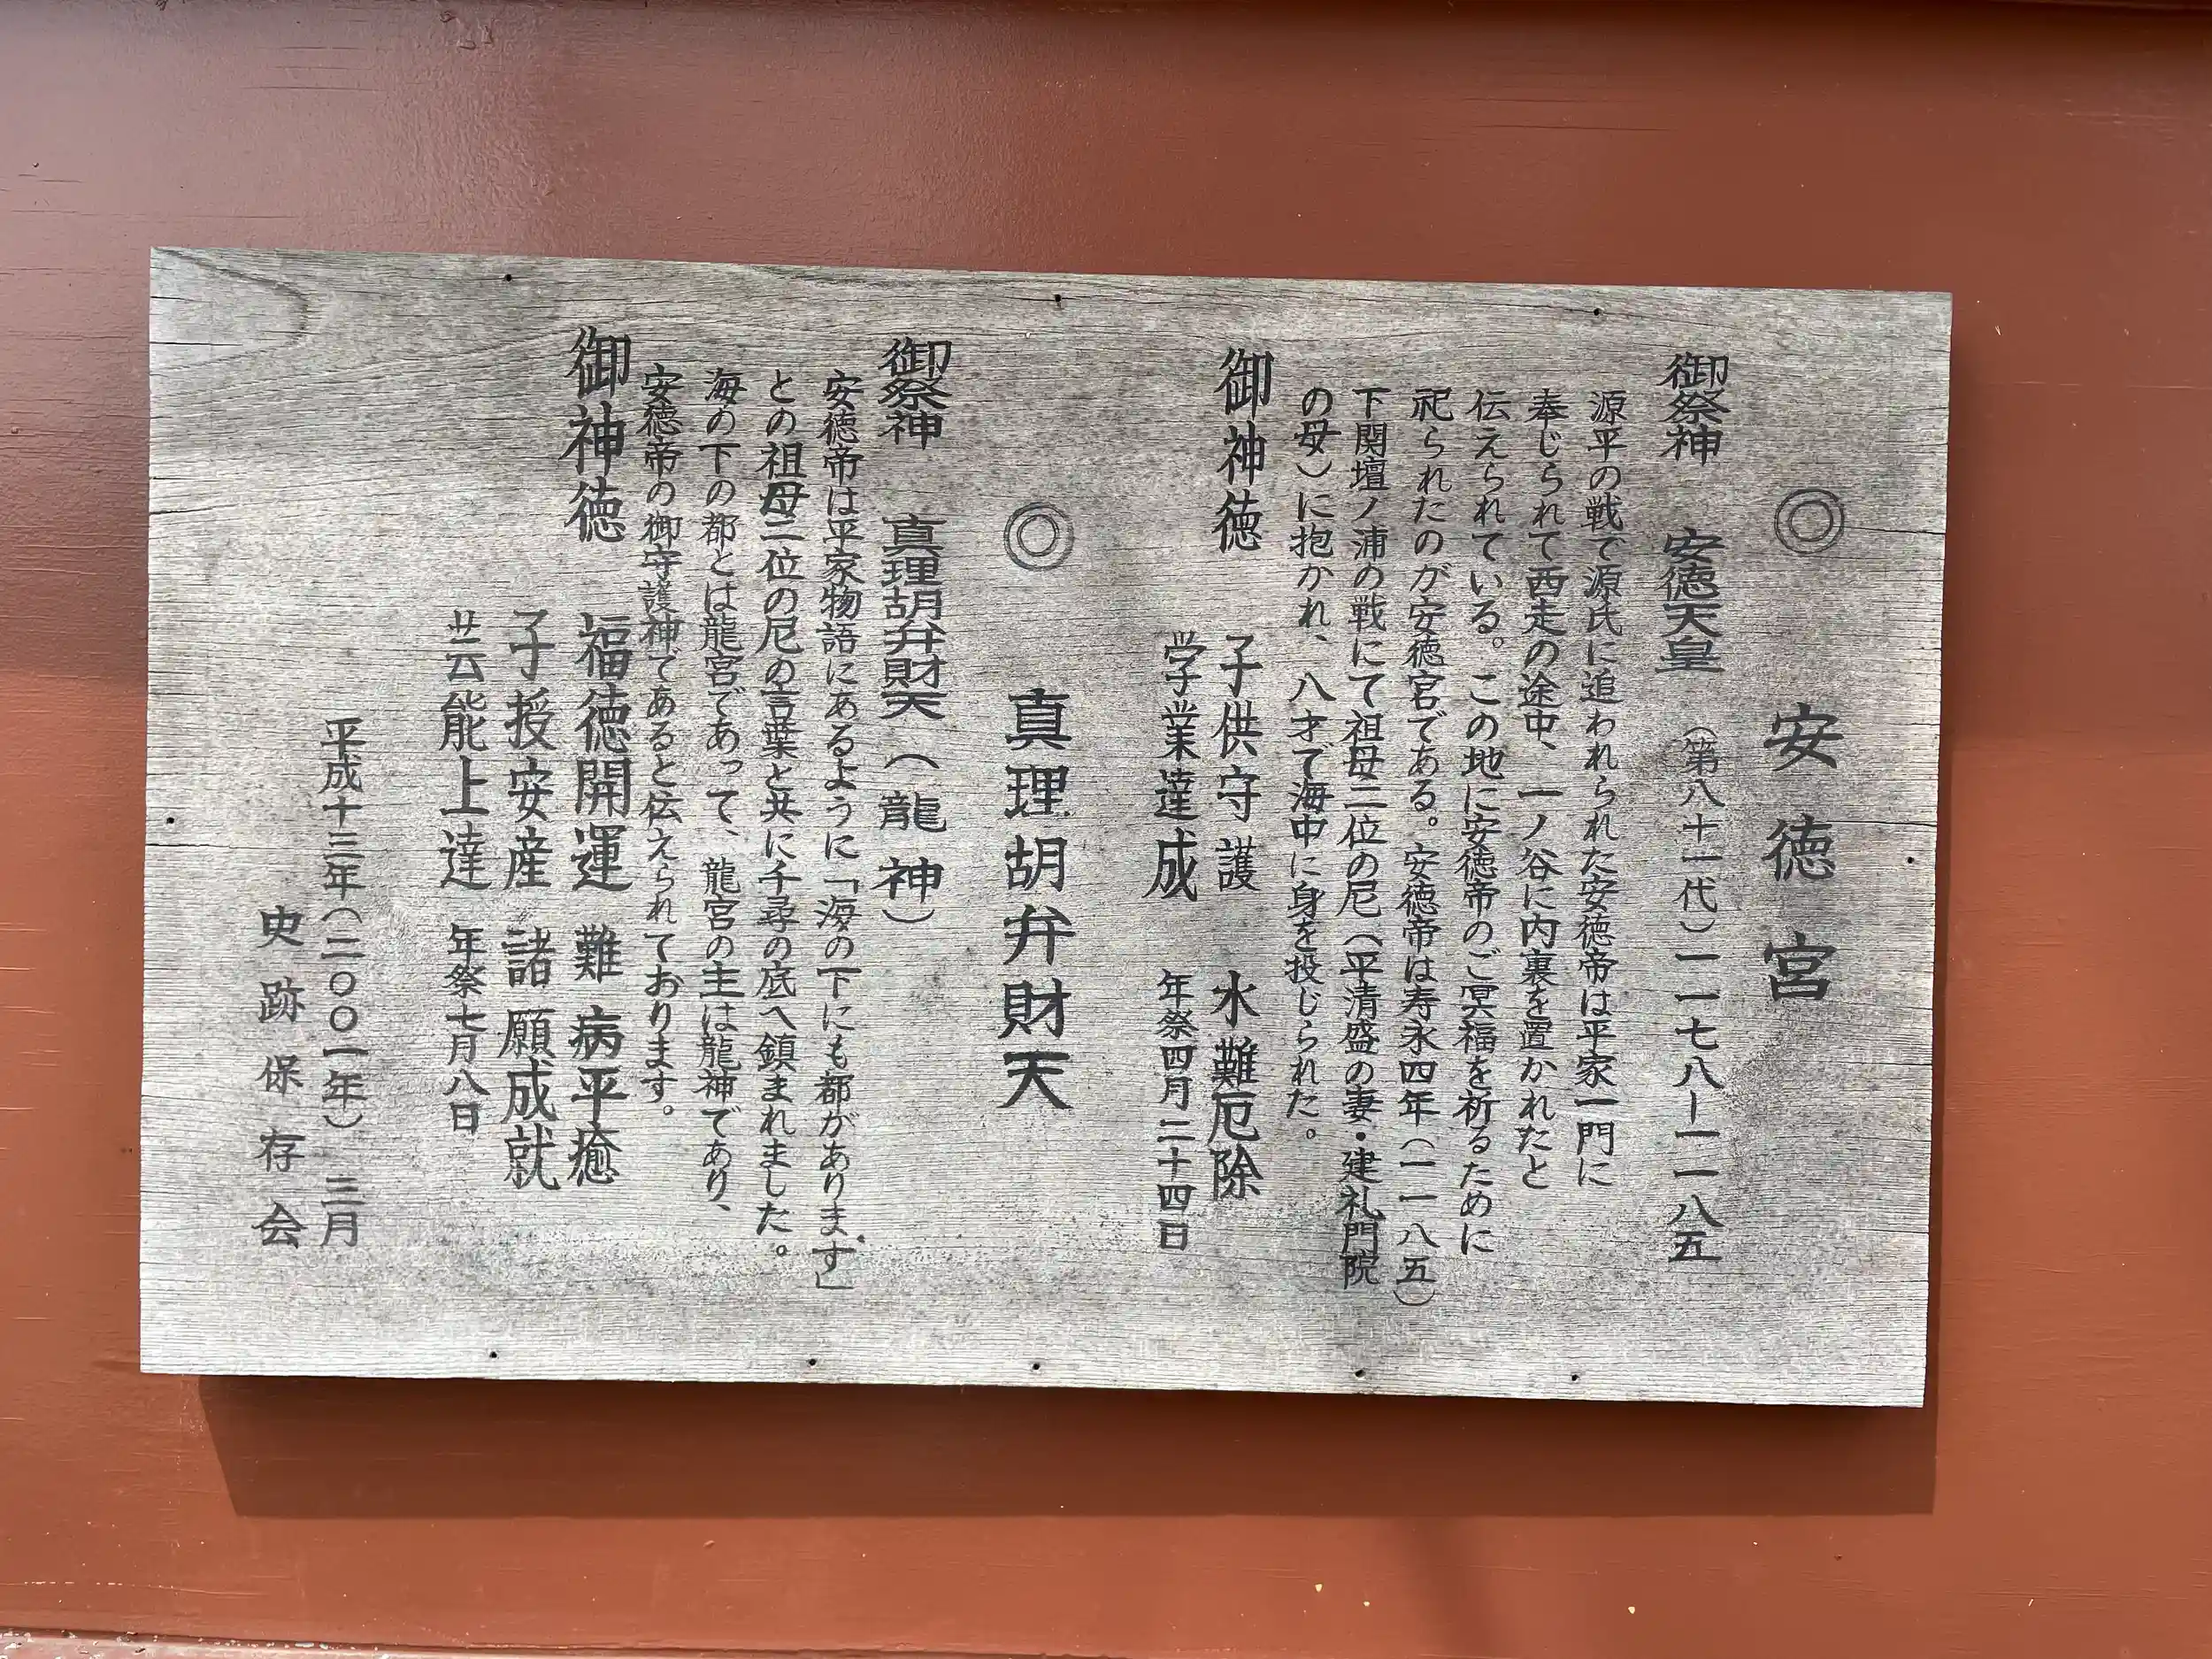 ◎ 安徳宮
御祭神 安徳天皇 (第八十一代)一一七八ー一一八五
源平の戦て源氏に追われられた安徳帝は平家一門に
奉じられて西走の途中、一ノ谷に内裏を置かれたと
伝えられている。この地に安徳帝のご冥福を祈るために
祀られたのが安徳宮である。安徳帝は寿永四年(一一八五)
下関壇ノ浦の戦にて祖母二位の尼(平清盛の妻・建礼門院
の母)に抱かれ、八才で海中に身を投じられた。
御神徳 子供守護 水難厄除
学業達成 年祭四月二十四日
◎ 真理胡弁財天
御祭神 真理胡弁財天(龍神)
安徳帝は平家物語にあるように「海の下にも都があります」
との祖母二位の尼の言葉と共に千尋の底へ鎮まれました。
海の下の都とは龍宮であって、龍宮の主は龍神であり、
安徳帝の御守護神であると伝えられております。
御神徳 福徳開運 難病平癒
子授安産 諸願成就
芸能上達 年祭七月八日
平成十三年(二〇〇一年) 三月
史跡保存会